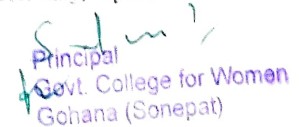 Principal
Govt. College for Women
Gohana (Sonepat)